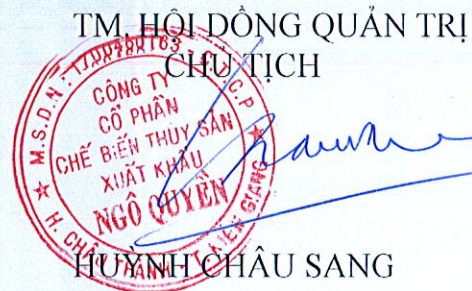 TM. HỘI ĐỒNG QUẢN TRỊ
CHỦ TỊCH
M.S.D.N - 1700460163 - C.T.C.P
CÔNG TY
CỔ PHẦN
CHẾ BIẾN THỦY SẢN
XUẤT KHẨU
NGÔ QUYỀN
H. CHÂU THÀNH - T. KIÊN GIANG
HUỲNH CHÂU SANG